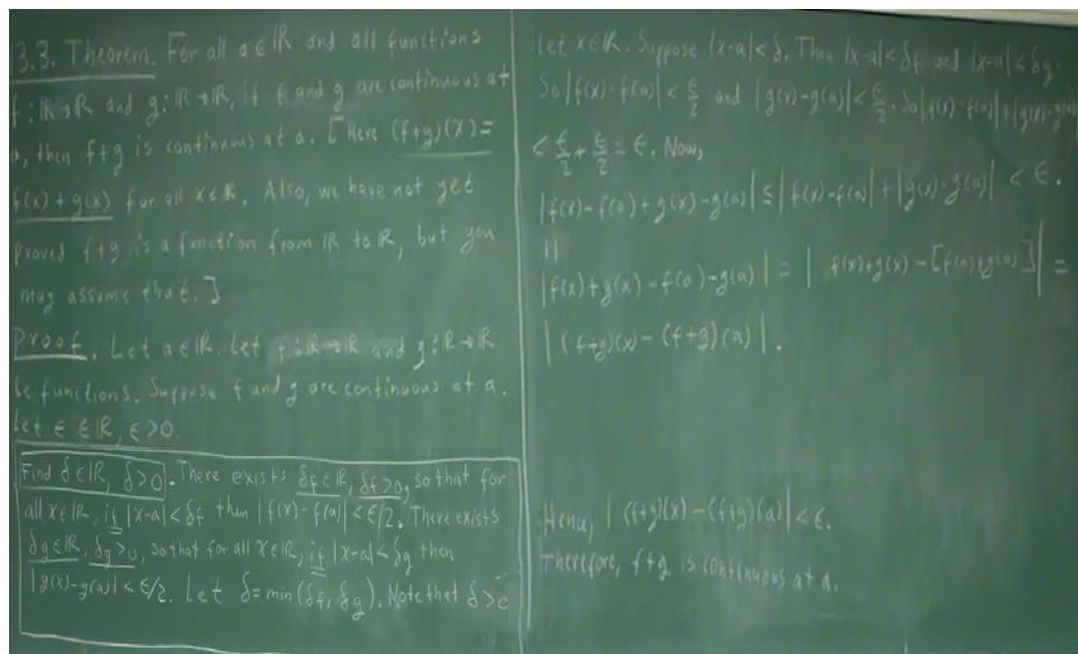 3.3. Theorem. For all a∈ℝ and all functions
f:ℝ→ℝ and g:ℝ→ℝ, if f and g are continuous at
a, then f+g is continuous at a. [Here (f+g)(x)=
f(x)+g(x) for all x∈ℝ. Also, we have not yet
proved f+g is a function from ℝ to ℝ, but you
may assume that.]
Proof. Let a∈ℝ. Let f:ℝ→ℝ and g:ℝ→ℝ
be functions. Suppose f and g are continuous at a.
Let ϵ∈ℝ, ϵ>0.
Find δ∈ℝ, δ>0. There exists δf∈ℝ, δf>0, so that for
all x∈ℝ, if |x-a|<δf then |f(x)-f(a)|<ϵ/2. There exists
δg∈ℝ, δg>0, so that for all x∈ℝ, if |x-a|<δg then
|g(x)-g(a)|<ϵ/2. Let δ=min(δf, δg). Note that δ>0
Let x∈ℝ. Suppose |x-a|<δ. Then |x-a|<δf and |x-a|<δg.
So |f(x)-f(a)|<ϵ/2 and |g(x)-g(a)|<ϵ/2. So |f(x)-f(a)|+|g(x)-g(a)|
<ϵ/2+ϵ/2=ϵ. Now,
|f(x)-f(a)+g(x)-g(a)|≤|f(x)-f(a)|+|g(x)-g(a)|<ϵ.
||
|f(x)+g(x)-f(a)-g(a)|=|f(x)+g(x)-[f(a)+g(a)]|=
|(f+g)(x)-(f+g)(a)|.
Hence, |(f+g)(x)-(f+g)(a)|<ϵ.
Therefore, f+g is continuous at a.